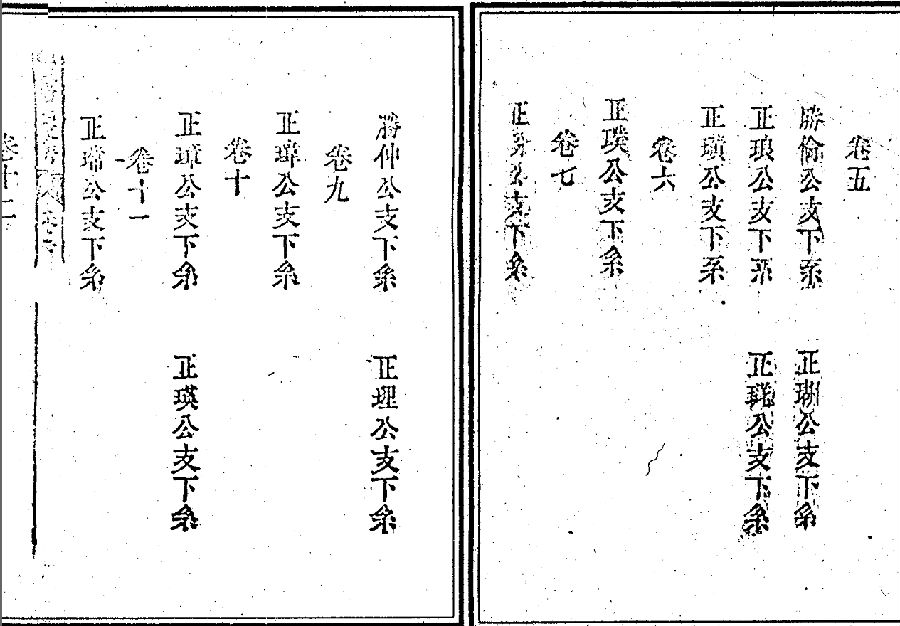 卷五
勝倫公支下系
正瑚公支下系
正琅公支下系
正公支下系
正璜公支下系
卷六
正璞公支下系
卷七
正公支下系
勝仲公支下系
正理公支下系
卷九
正璋公支下系
卷十
正璋公支下系
正瑛公支下系
卷十一
正公支下系
卷十二